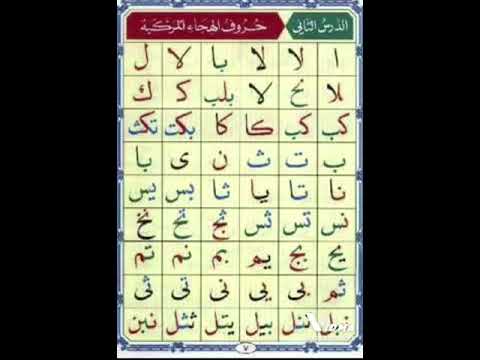 الدرس الثاني حروف الهجاء المركبة
ا لا لا با لا ل
بلا نح لا بلب ک ك
كب كب كا كا بكت تكث
ب ت ث ن ى با
نا تا يا ثا بس يس
نس تس ثس ثج تح نخ
يح بج يم بم نم تم
ثم بى يى نى تى ثى
نبل تنل بيل يتل ثثل نبن
٧